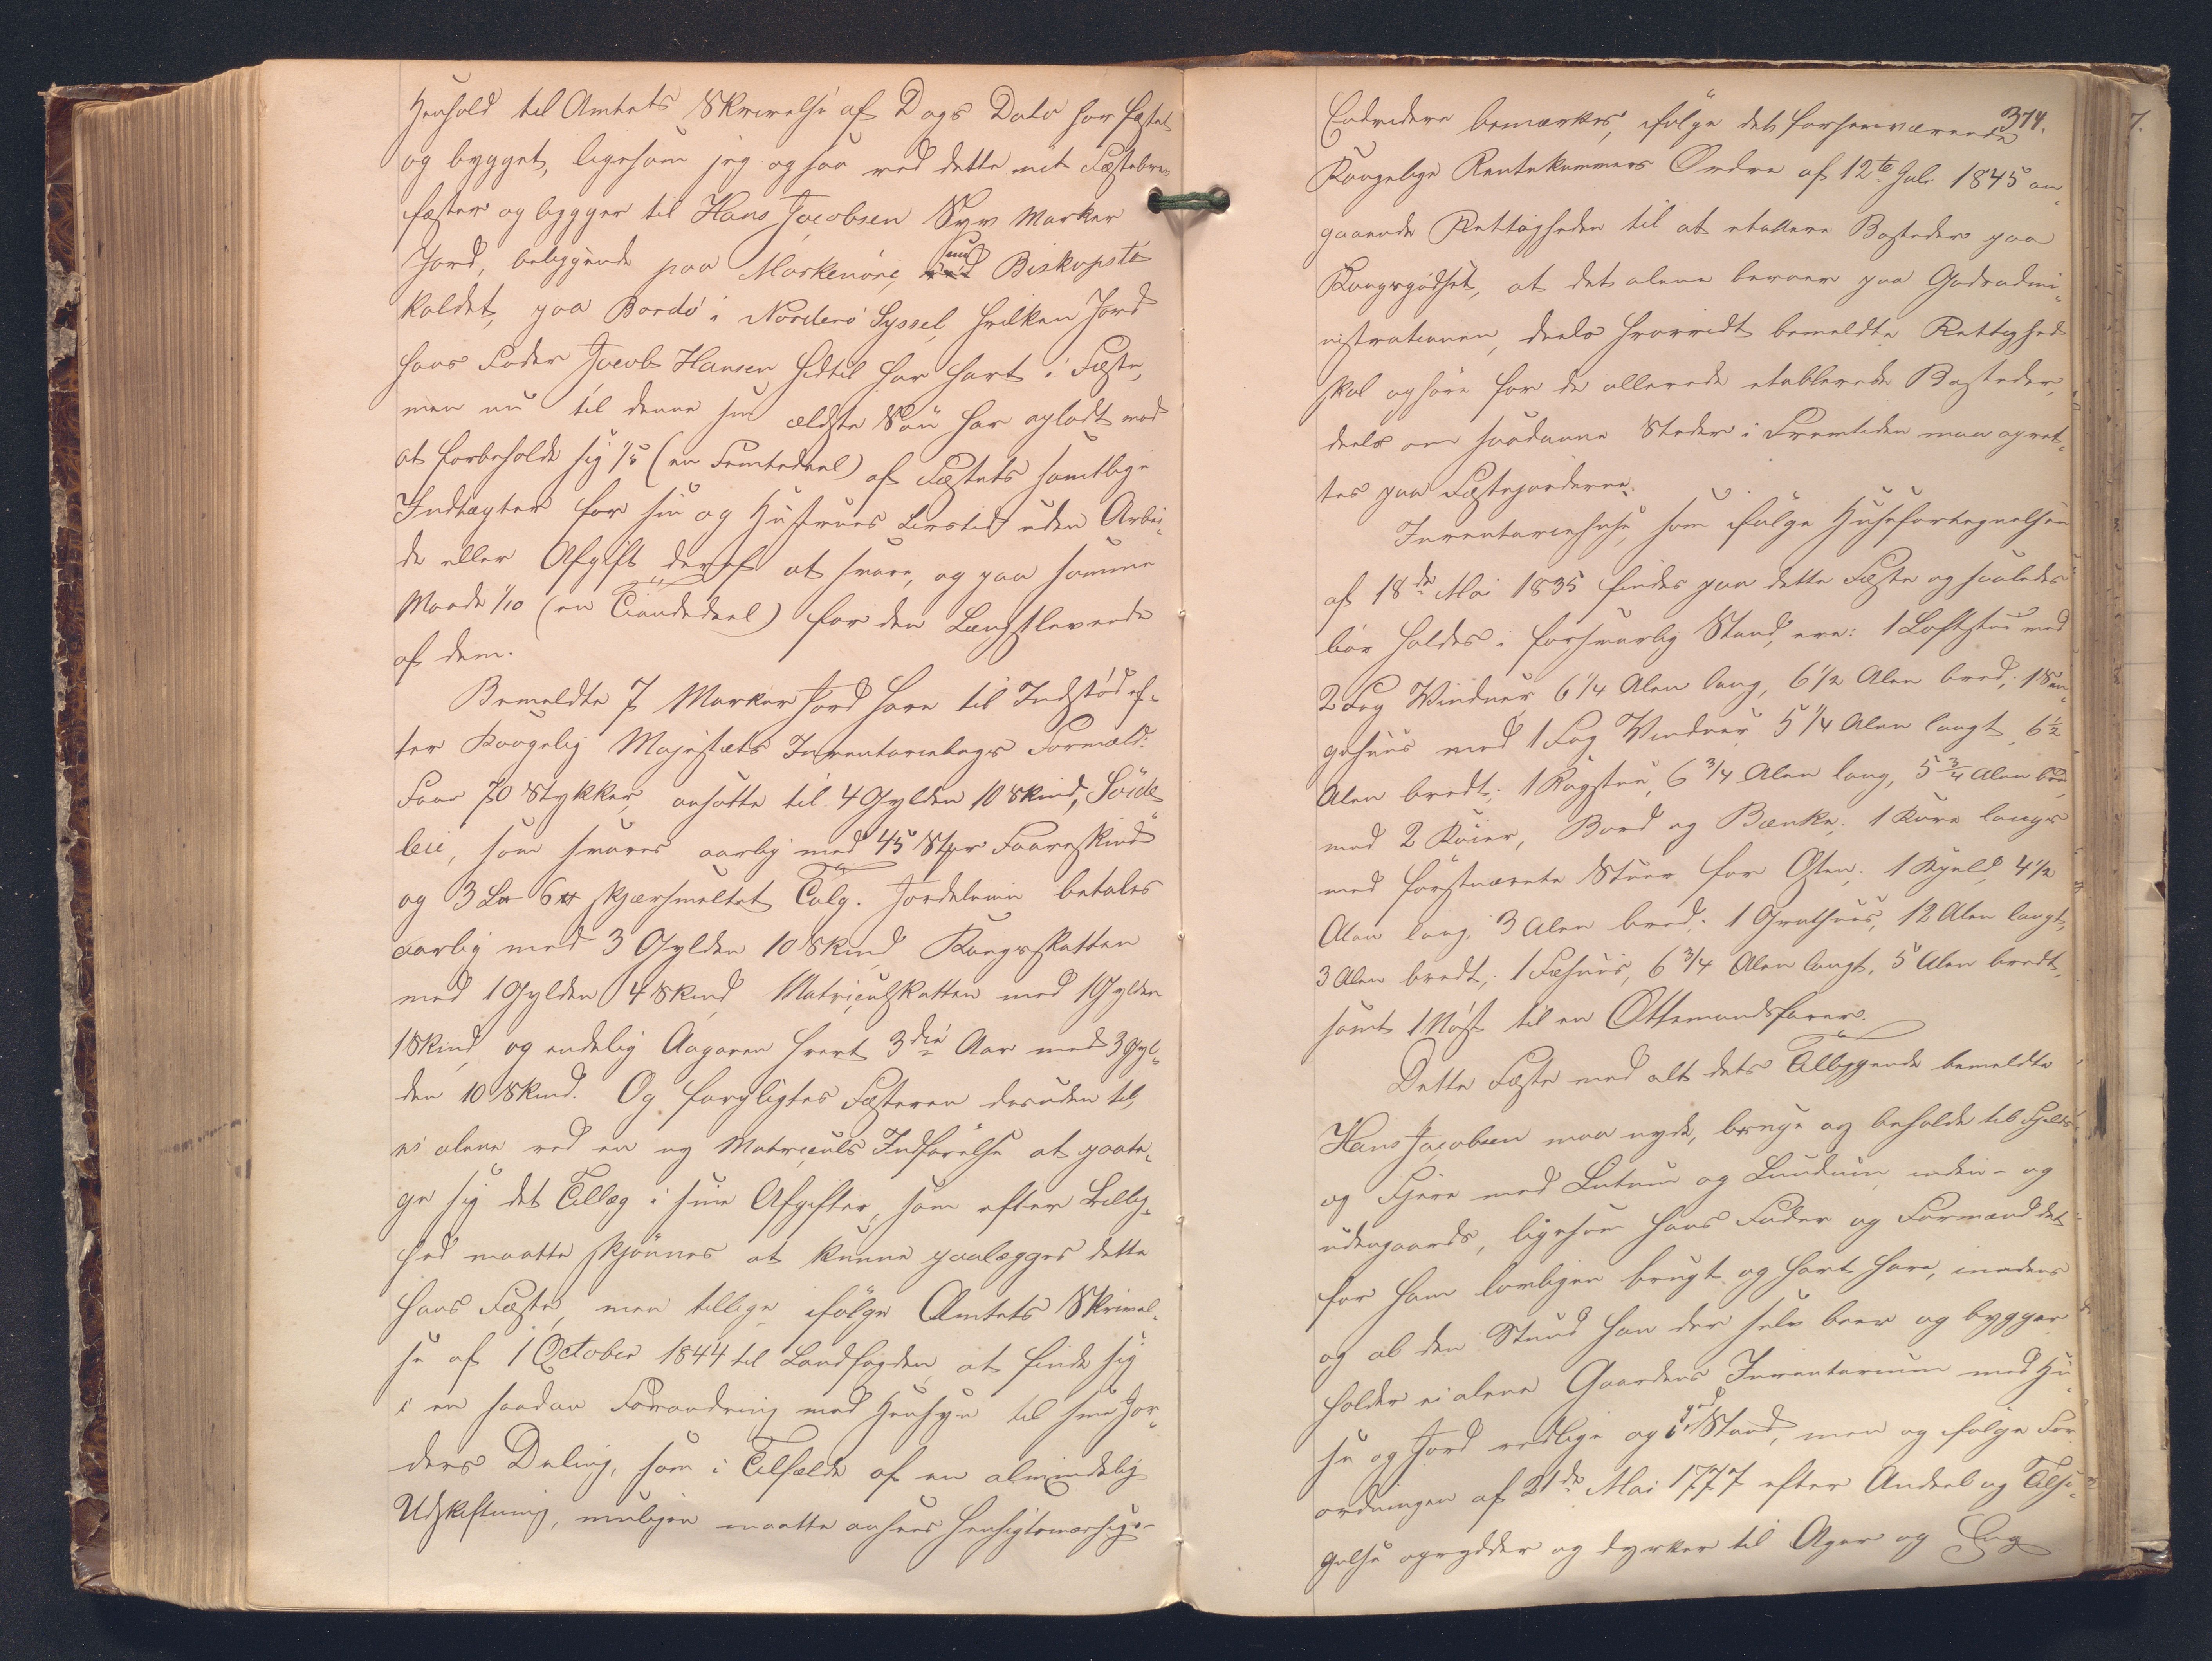 Henhold til Amtets Skrivelse af Dags Dato har fæstet
og bygget, ligesom jeg ogsaa ved dette mit Fæstebrev
fæster og bygger til Hans Jacobsen Syv Marker
Jord, beliggende paa Mørkenøre, sund Biskopstö
kaldet, paa Bordö i Norderö Syssel, hvilken Jord
hans Fader Jacob Hansen hidtil har havt i Fæste,
men nu til denne sin ældste Sön har opladt mod
at forbeholde sig 1/5 (en Femtedeel) af Fæstets samtlige
Indtægter for sin og Hustrues Livstid uden Arbei„
de eller Afgift deraf at svare, og paa samme
Maade 1/10 (en Tiendedeel) for den Længstlevende
af dem.
Bemeldte 7 Marker Jord have til Indstöd ef„
ter Kongelig Majestæts Inventariebogs Formeld:
Faar 70 Stykker ansatte til 4 Gylden 10 Skind, Söide
leie, som svares aarlig med 45 Stkr Faareskind
og 3 L℔ 6 ℔ skjærsmeltet Talg. Jordeleien betales
aarlig med 3 Gylden 10 Skind, Kongsskatten
med 1 Gylden 4 Skind, Matriculskatten med 1 Gylden
1 Skind, og endelig Aagaven hvert 3die Aar med 3 Gyl„
den 10 Skind. Og forpligtes Fæsteren desuden til,
ei alene ved en ny Matriculs Indförelse at paata„
ge sig det Tillæg i sine Afgifter, som efter Billig„
hed maatte skjönnes at kunne paalægges dette
hans Fæste, men tillige ifölge Amtets Skrivel„
se af 1 October 1844 til Landfogden, at finde sig
i en saadan Forandring med Hensyn til sine Jor„
ders Deling, som i Tilfælde af en almindelig
Udskiftning, muligen maatte ansees hensigtsmæssig.-
374.
Endvidere bemærkes, ifölge det forhenværende
Kongelige Rentekammers Ordre af 12te Juli 1845 an„
gaaende Rettigheden til at etablere Bosteder paa
Kongsgodset, at det alene beroer paa Godsadmi„
nistrationen, deels hvorvidt bemeldte Rettighed
skal ophöre for de allerede etablerede Bosteder,
deels om saadanne Steder i Fremtiden maa opret„
tes paa Fæstejorderne.
Inventariehuse, som ifölge Husefortegnelsen
af 18de Mai 1835 findes paa dette Fæste og saaledes
bör holdes i forsvarlig Stand, ere: 1 Loftstue med
2 Fag Vinduer 6 1/4 Alen lang, 6 1/2 Alen bred; 1 Sen„
gehuus med 1 Fag Vinduer 5 1/4 Alen langt, 6 1/2
Alen bredt; 1 Rögstue, 6 3/4 Alen lang, 5 3/4 Alen bred,
med 2 Köier, Bord og Bænke; 1 Kove langs
med förstnævnte Stuer for Osten; 1 Kjeld, 4 1/2
Alen lang, 3 Alen bred; 1 Gruthuus, 12 Alen langt,
3 Alen bredt; 1 Fæhuus, 6 3/4 Alen langt, 5 Alen bredt,
samt 1 Nöst til en Ottemandsfarer.
Dette Fæste med alt dets Tilliggende bemeldte
Hans Jacobsen maa nyde, bruge og beholde til Fjelds
og Fjære med Lutum og Lundum, inden- og
udengaards, ligesom hans Fader og Formænd det
for ham lovligen brugt og havt have, imedens
og al den Stund han der selv boer og bygger
holder ei alene Gaardens Inventarium med Hu„
se og Jord vedlige og i god Stand, men og ifölge For
ordningen af 21de Mai 1777 efter Andeel og Tilsi„
gelse oprydder og dyrker til Ager og Eng